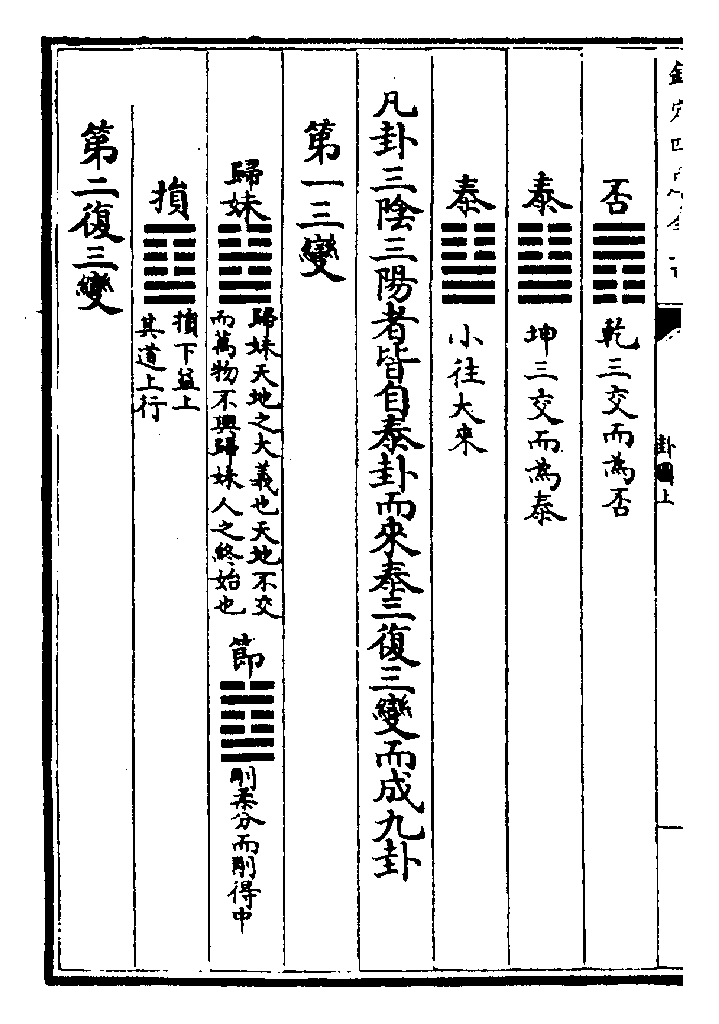 卦圖上
否
乾三交而為否
泰
坤三交而為泰
泰
小往大來
凡卦三陰三陽者皆自泰卦而來泰三復三變而成九卦
第一三變
歸妹
歸妹天地之大義也天地不交
而萬物不興歸妹人之終始也
節
剛柔分而剛得中
損
損下益上
其道上行
第二復三變